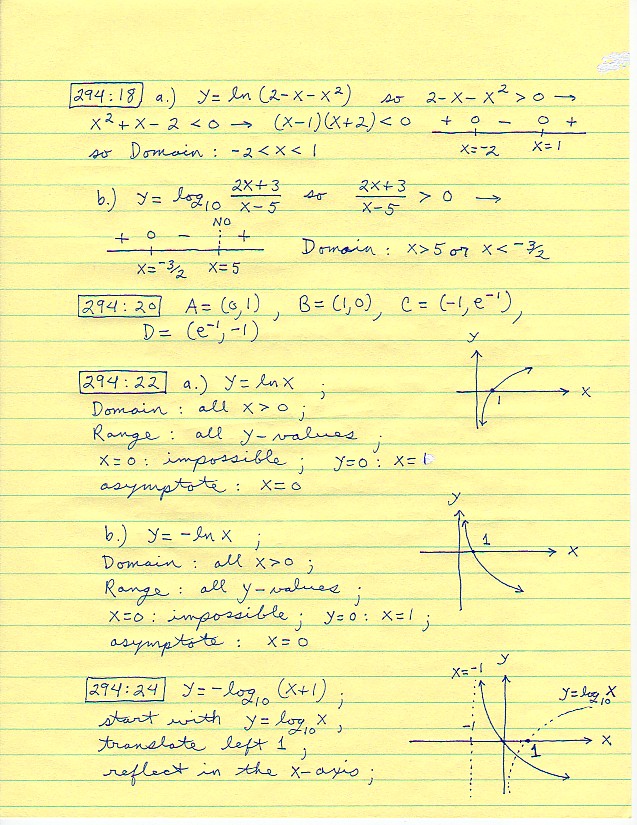 294:18 a.) y = ln (2-x-x²) so 2-x-x² > 0 →
x²+x-2 < 0 → (x-1)(x+2) < 0 + 0 - 0 +
x=-2 x=1
so Domain : -2 < x < 1
b.) y = log₁₀ (2x+3)/(x-5) so (2x+3)/(x-5) > 0 →
NO
+ 0 - +
x=-3/2 x=5
Domain : x>5 or x<-3/2
294:20 A = (0,1) , B = (1,0) , C = (-1, e⁻¹) ,
D = (e⁻¹, -1)
294:22 a.) y = ln x ;
Domain : all x>0 ;
Range : all y-values ;
x=0 : impossible ; y=0 : x=1
asymptote : x=0
y
x
1
b.) y = -ln x ;
Domain : all x>0 ;
Range : all y-values ;
x=0 : impossible ; y=0 : x=1 ;
asymptote : x=0
y
1
x
294:24 y = -log₁₀ (x+1) ;
start with y = log₁₀ x ,
translate left 1 ,
reflect in the x-axis ;
x=-1 y
y=log₁₀ x
-1
1
x